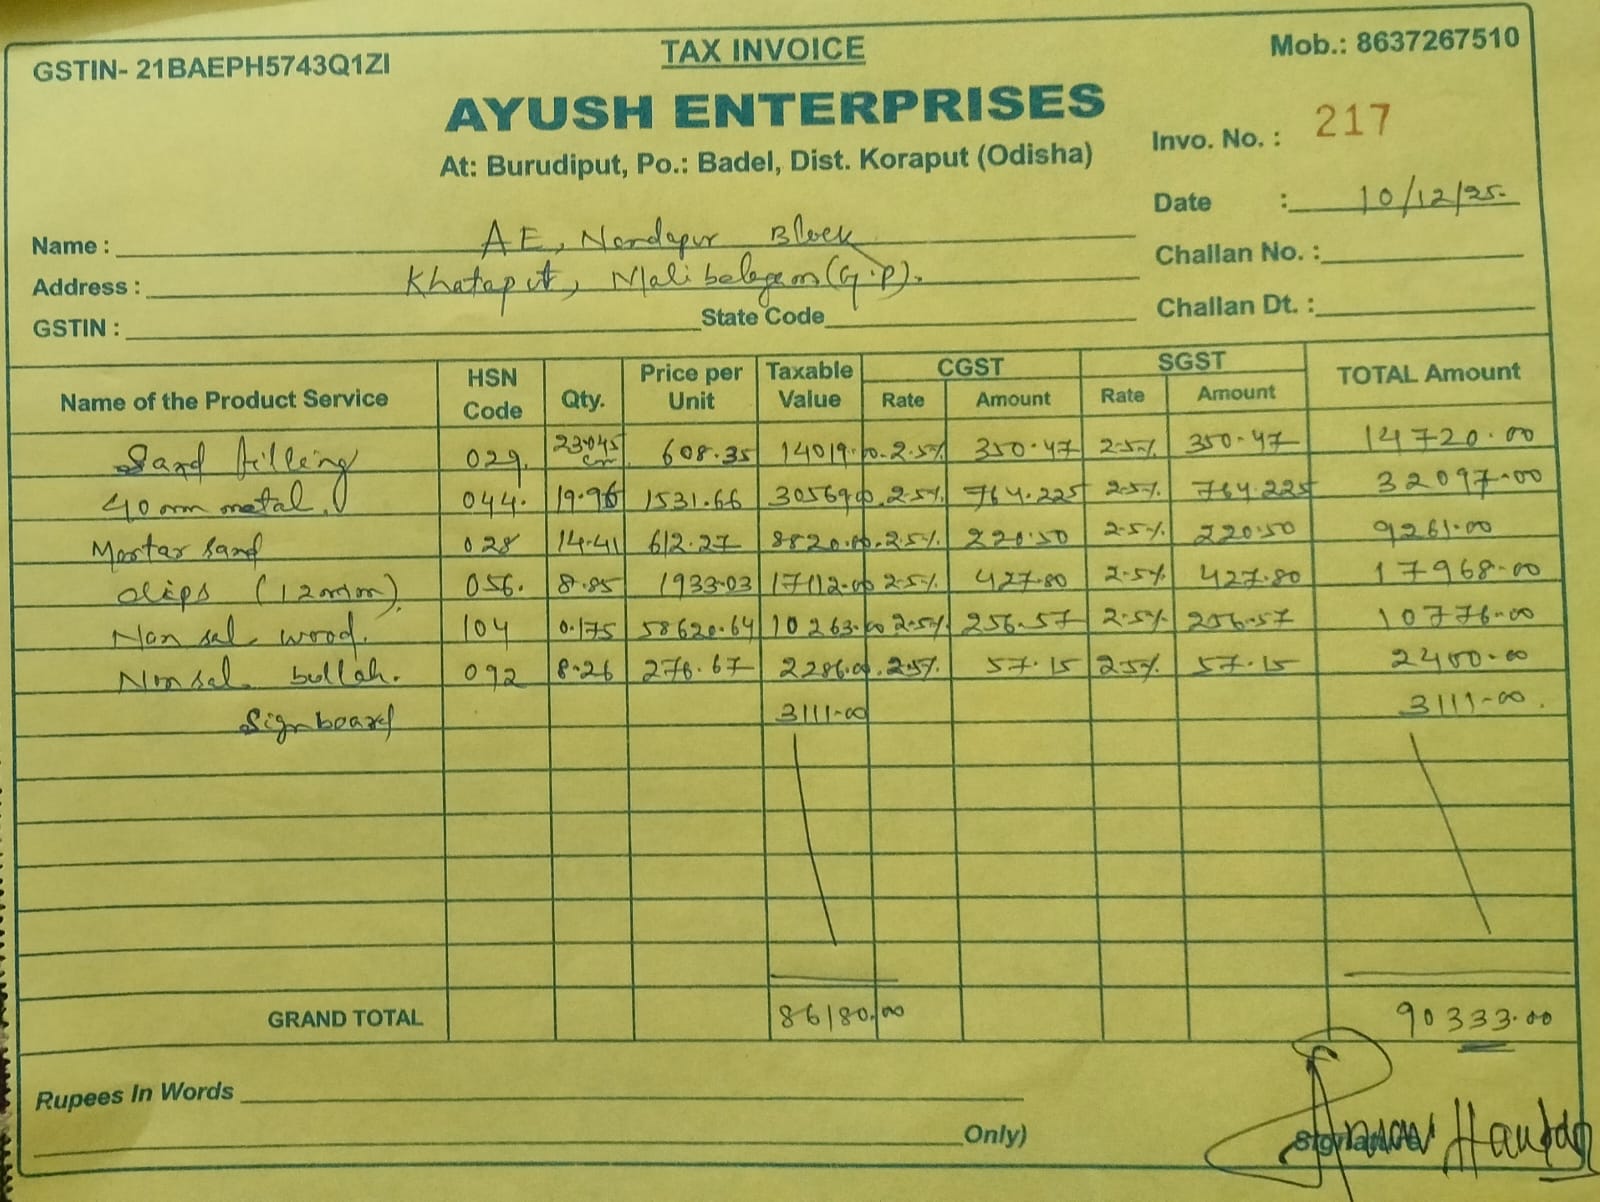 GSTIN- 21BAEPH5743Q1ZI TAX INVOICE Mob.: 8637267510
AYUSH ENTERPRISES
At: Burudiput, Po.: Badel, Dist. Koraput (Odisha)
Invo. No. : 217
Date : 10/12/25-
Name : AE, Nandapur Block
Challan No. :
Address : Khataput, Malibelagam (G.P).
GSTIN : State Code
Challan Dt. :
Name of the Product Service HSN Code Qty. Price per Unit Taxable Value CGST Rate Amount SGST Rate Amount TOTAL Amount
Sand filling 029. 23.045 cm 608.35 14019.00 2.5% 350.47 2.5% 350.47 14720.00
40mm metal. 044. 19.96 1531.66 30569.00 2.5% 764.225 2.5% 764.225 32097.00
Mortar sand 028 14.41 612.27 8820.00 2.5% 220.50 2.5% 220.50 9261.00
(12mm). 056. 8.85 1933.03 17112.00 2.5% 427.80 2.5% 427.80 17968.00
Non sal wood. 104 0.175 58620.64 10263.00 2.5% 256.57 2.5% 256.57 10776.00
Non sal bullah. 092 8.26 276.67 2286.00 2.5% 57.15 2.5% 57.15 2400.00
Signboard 3111-00 3111-00.
GRAND TOTAL 86180.00 90333.00
Rupees In Words
Only)
Signature